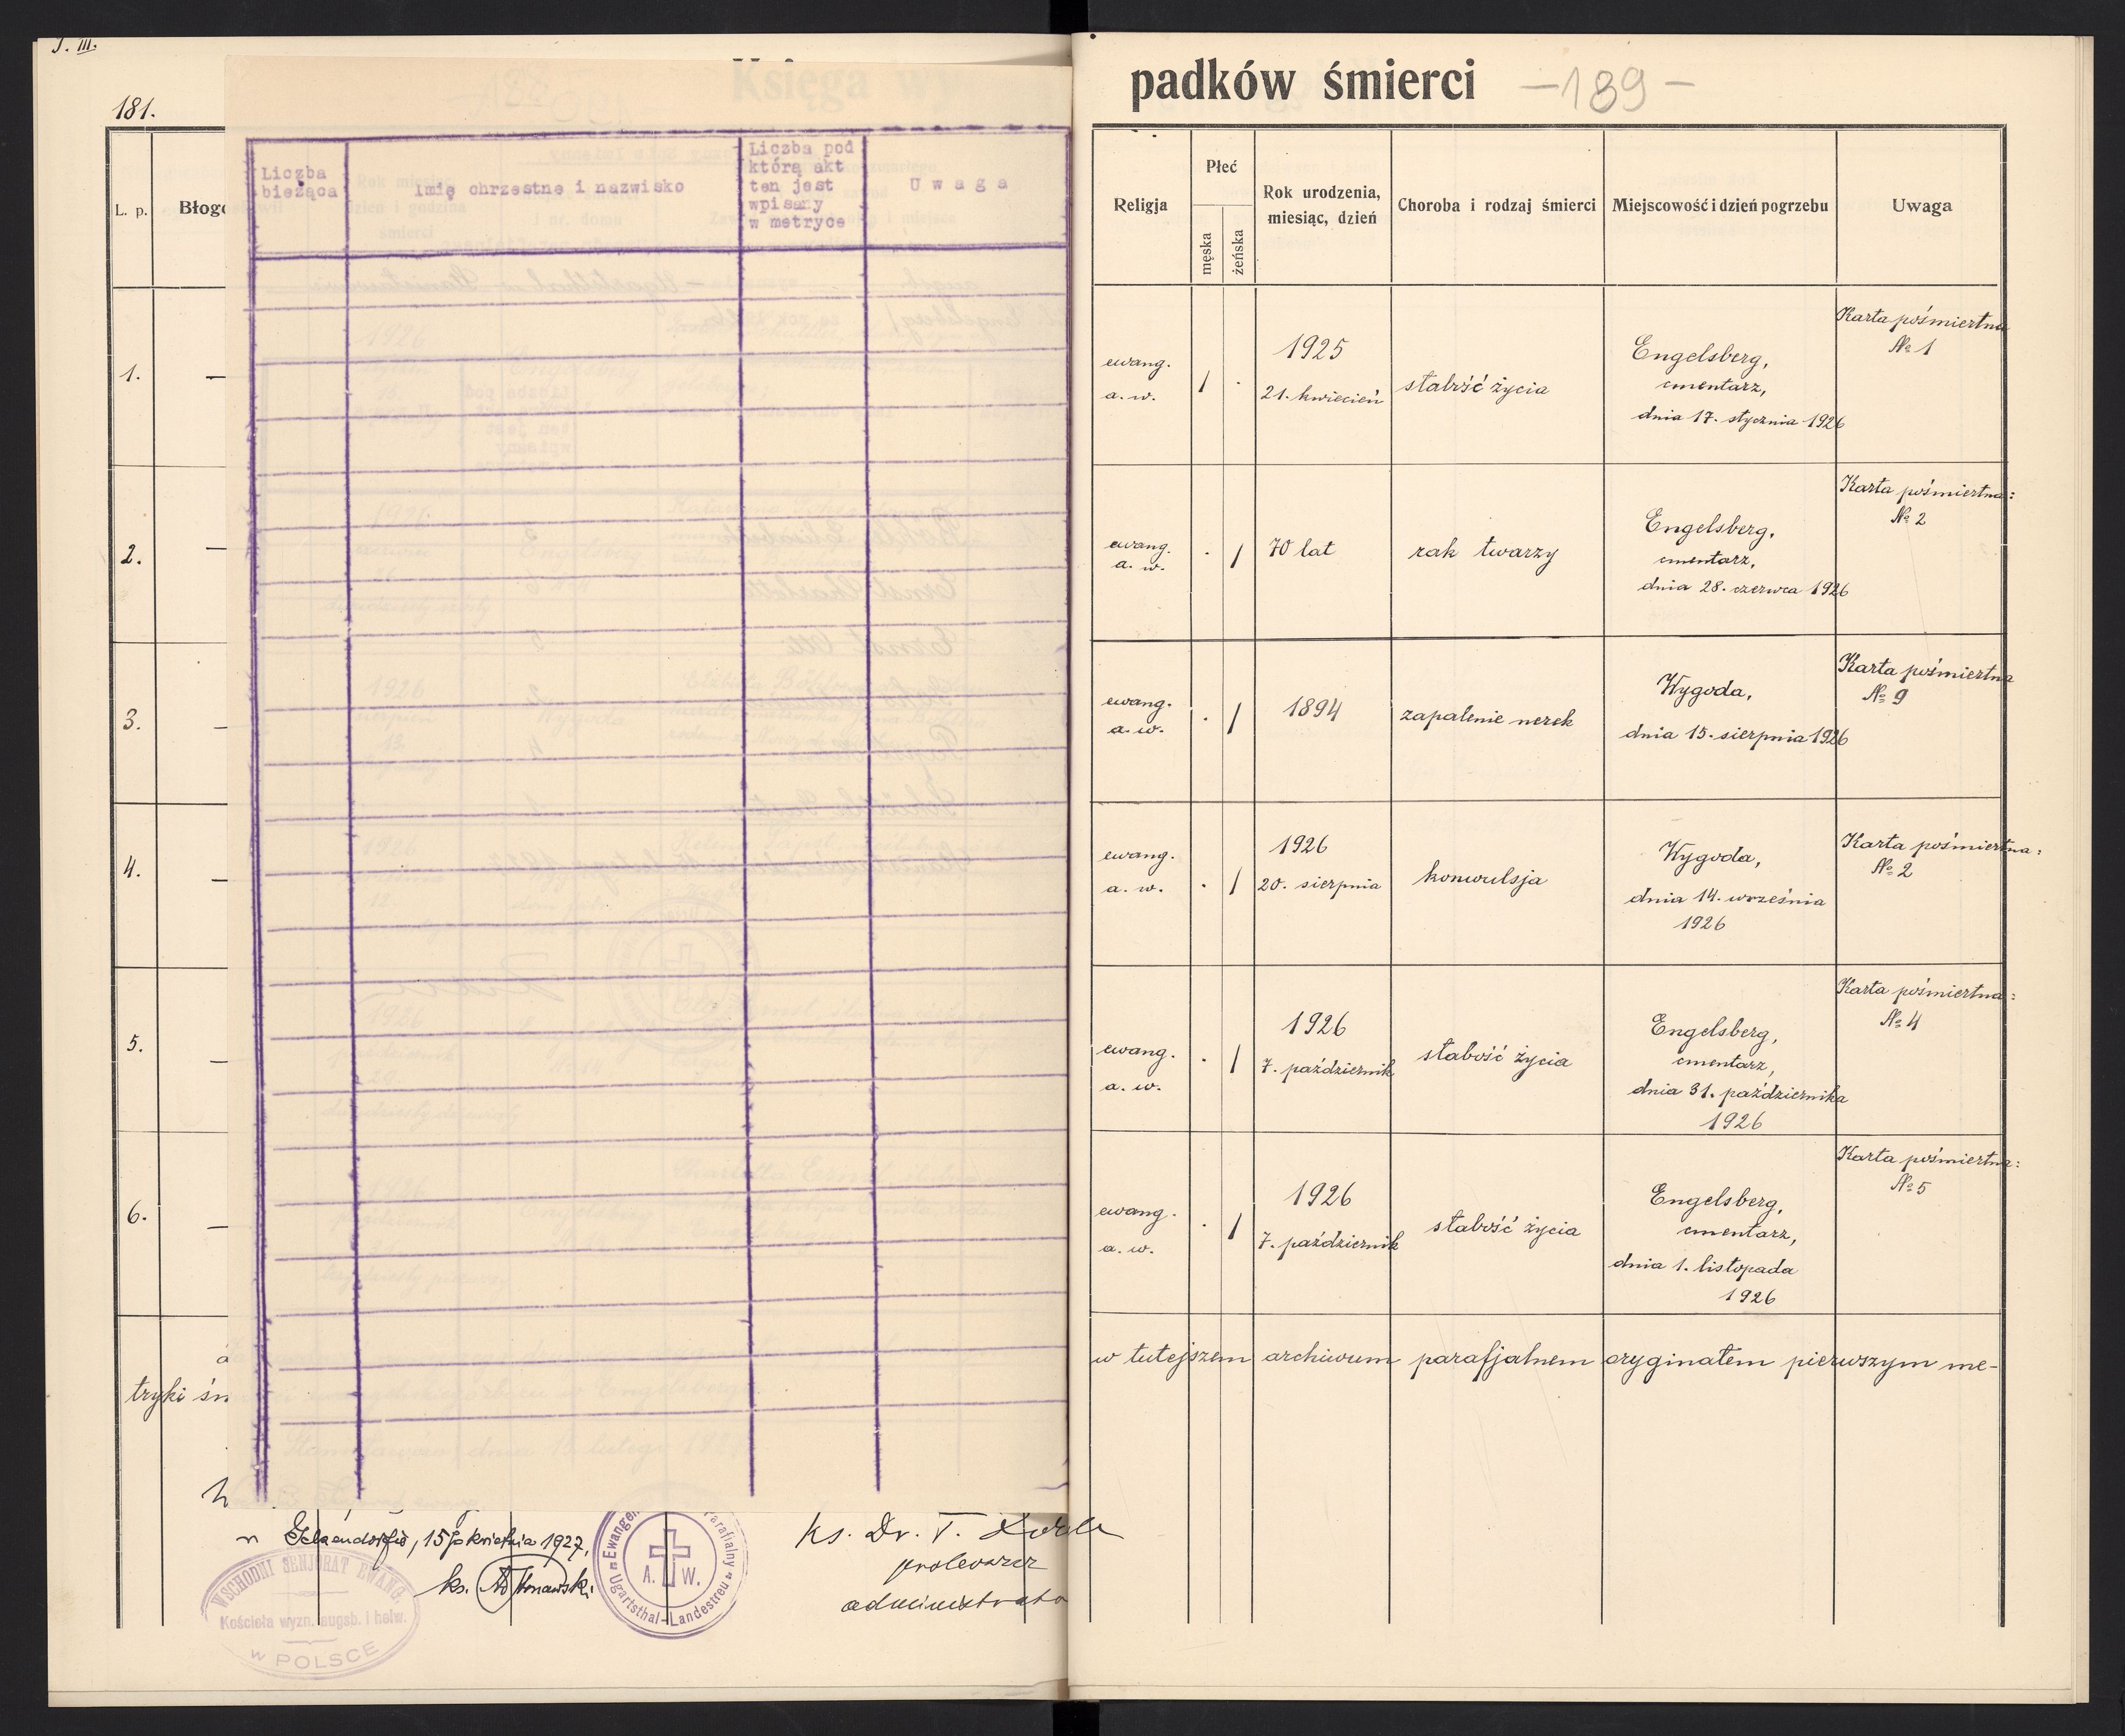 181.
L. p.
1.
2.
3.
4.
5.
6.
tryki
Liczba bieżąca
Imię chrzestne i nazwisko
Liczba pod którą akt ten jest wpisany w metryce
U w a g a
15go kwietnia 1927,
ks.
WSCHODNI SENJORAT EWANG.
Kościoła wyzn. augsb. i helw.
w POLSCE
A. W.
Ugartsthal-Landestreu
ks. Dr. T.
proboszcz
padków śmierci -189-
Religja
Płeć
męska
żeńska
Rok urodzenia, miesiąc, dzień
Choroba i rodzaj śmierci
Miejscowość i dzień pogrzebu
Uwaga
ewang. a. w.
1925
21. kwiecień
słabość życia
Engelsberg,
cmentarz,
dnia 17. stycznia 1926
Karta pośmiertna
№ 1
ewang. a. w.
70 lat
rak twarzy
Engelsberg,
cmentarz,
dnia 28. czerwca 1926
Karta pośmiertna:
№ 2
ewang. a. w.
1894
zapalenie nerek
Wygoda,
dnia 15. sierpnia 1926
Karta pośmiertna
№ 9
ewang. a. w.
1926
20. sierpnia
konwulsja
Wygoda,
dnia 14. września
1926
Karta pośmiertna:
№ 2
ewang. a. w.
1926
7. październik
słabość życia
Engelsberg,
cmentarz,
dnia 31. października
1926
Karta pośmiertna:
№ 4
ewang. a. w.
1926
7. październik
słabość życia
Engelsberg,
cmentarz,
dnia 1. listopada
1926
Karta pośmiertna:
№ 5
w tutejszem archiwum parafjalnem oryginałem pierwszym me-